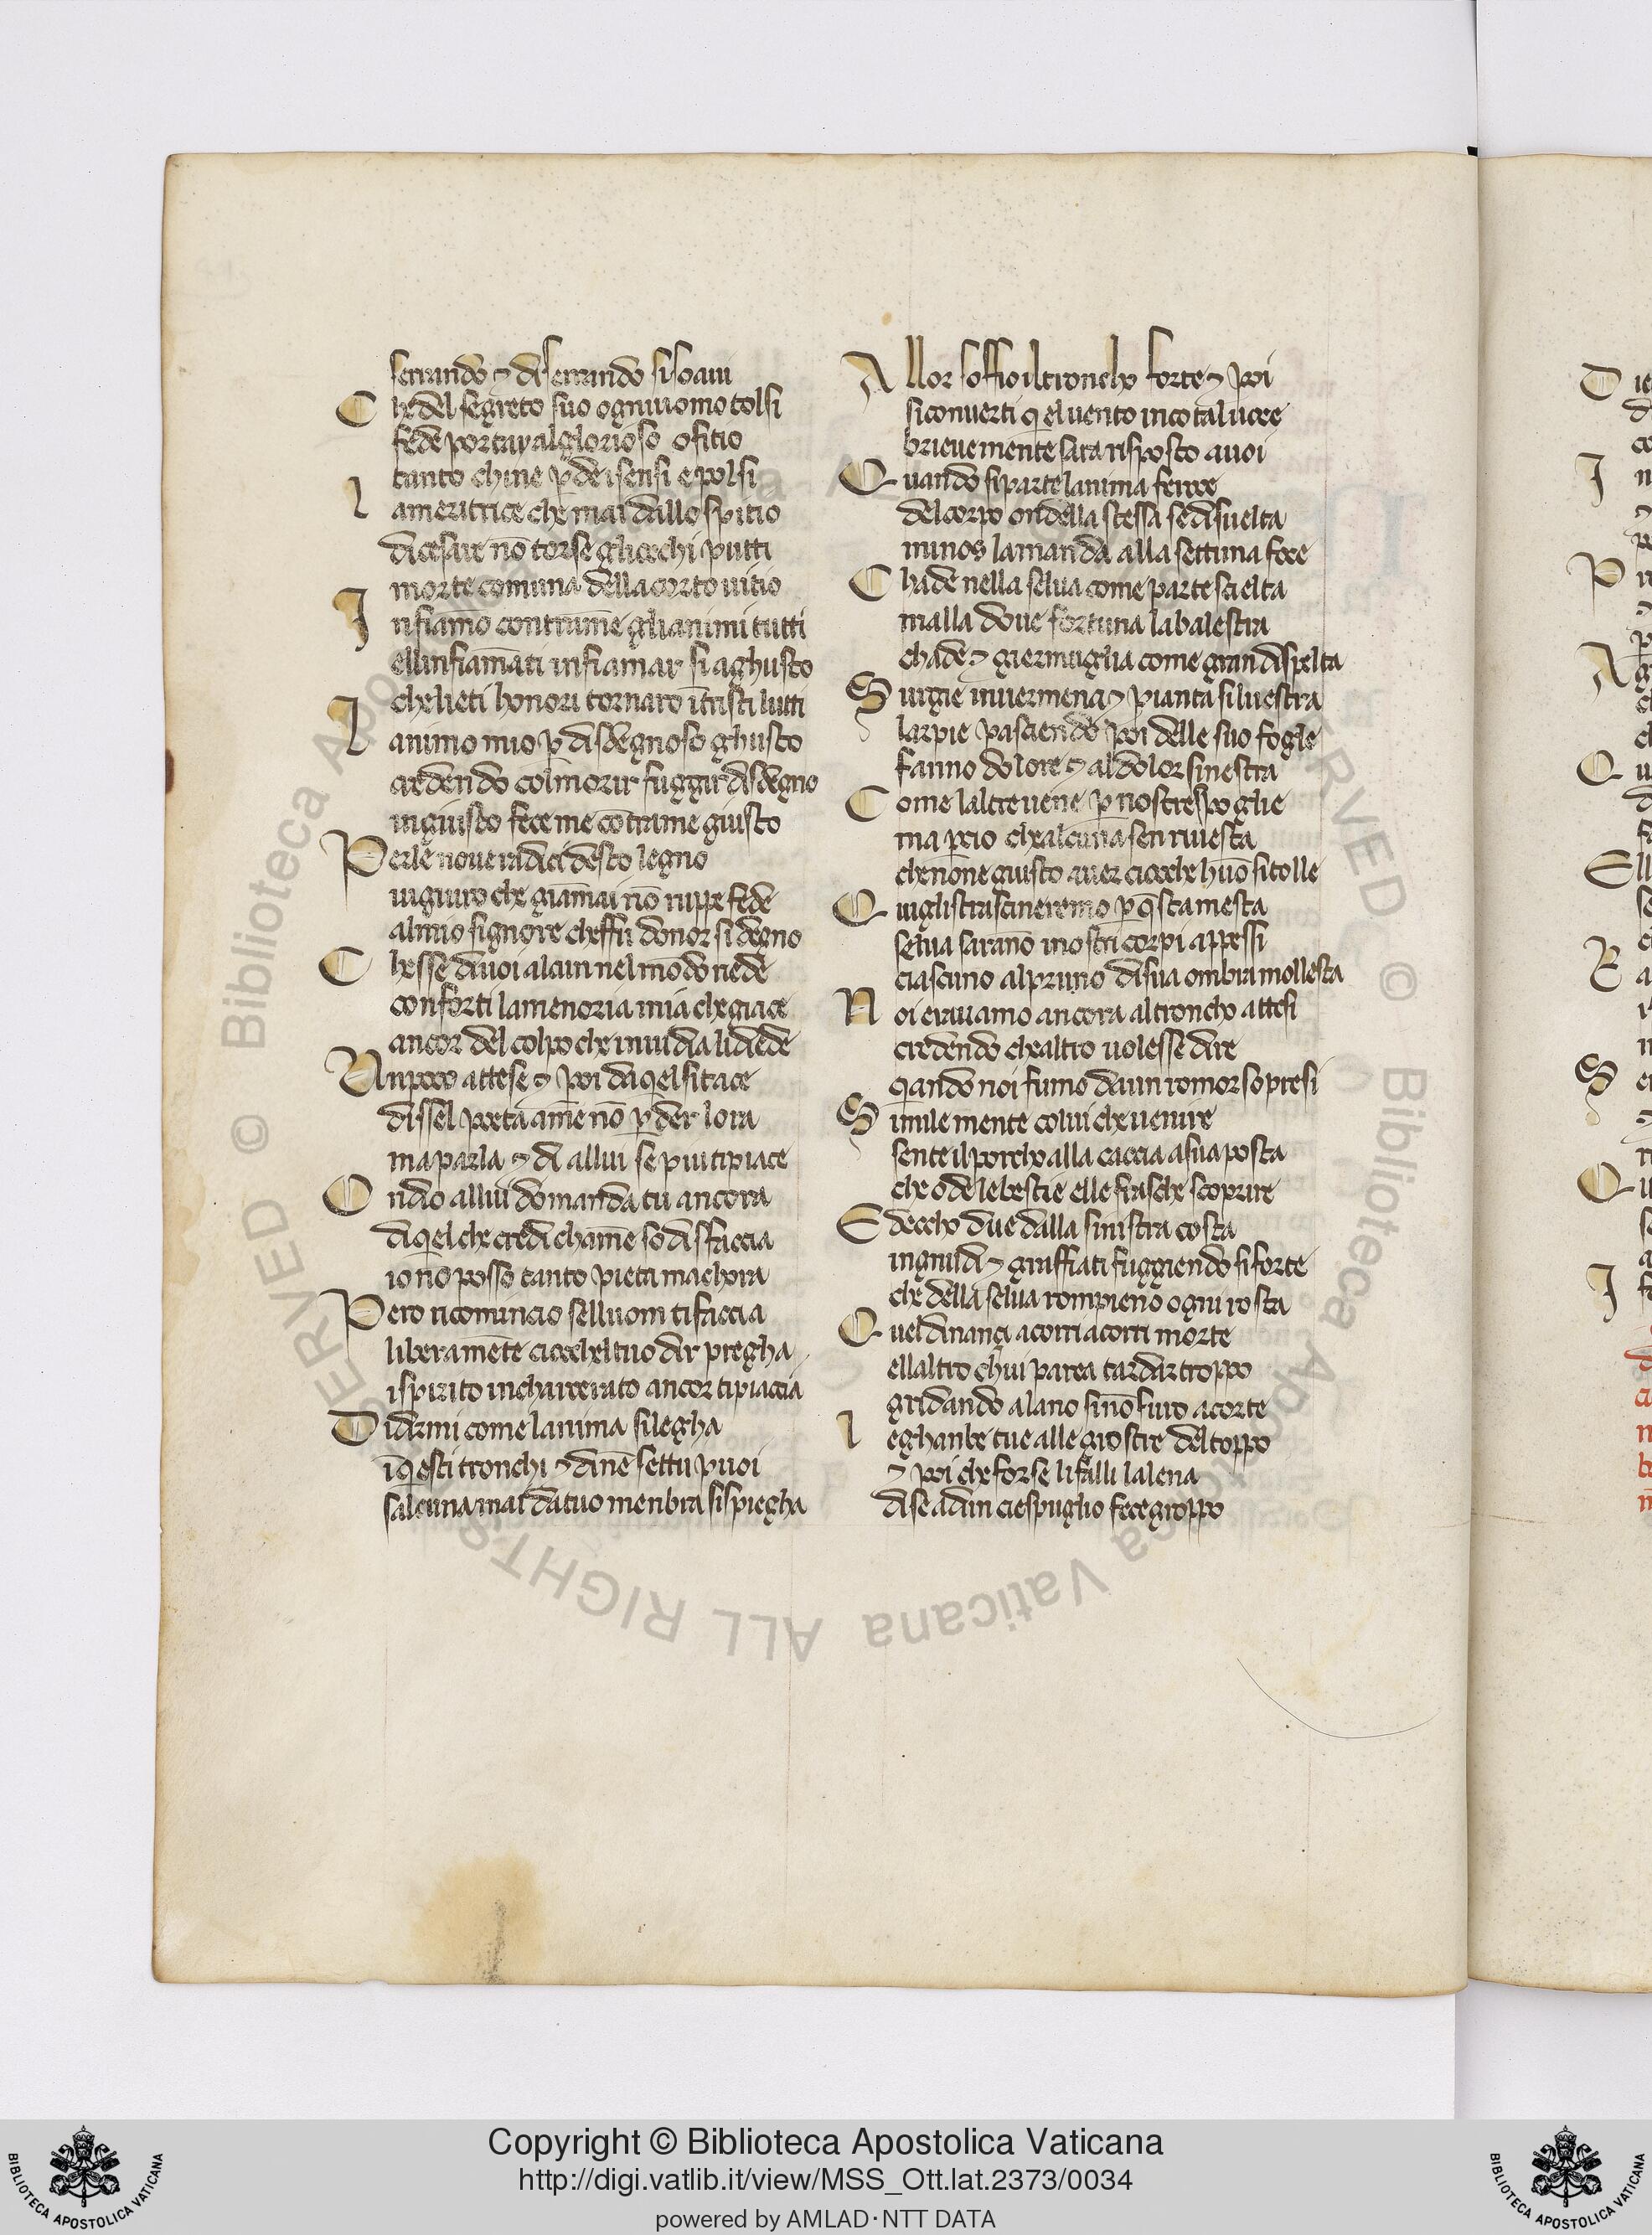 serrando ⁊ diserrando si soaui
Che del segreto suo ogniuomo tolsi
fede portay al glorioso ofitio
tanto chine ꝑdei sensi e polsi
La meritrice che mai dallo spitio
dicesare nō torse gliocchi putti
morte comuna della corto uitio
Infiamō contrame glianimi tutti
ellinfiamāti infiamar si aghusto
chelieti honori tornaro ītristi lutti
Lanimo mio ꝑ disdegnoso ghusto
credendo colmorir fuggir disdegno
ingiusto fece me cōtrame giusto
Perle noue radici desto legno
uigiuro che giamai nō ruppe fede
almio signore cheffu donor si degno
Chesse diuoi alcun nel mōdo riede
conforti lamenoria mia che giace
ancor del colpo che inuidia li diede
Unpoco attese ⁊ poi daqel sitace
dissel poeta ame nō ꝑder lora
ma parla ⁊ di allui se piu tipiace
Ondio allui domanda tu ancora
diqel che credi chame sodisfaccia
io nō posso tanto pieta machora
Pero ricomincio selluom tifaccia
liberamēte cioche ltuo dir pregha
ispirito incharcerato ancor tipiaccia
Didirmi come lanima silegha
īqesti tronchi ⁊ dine settu puoi
salcuna mai datuo menbra sispiegha
Allor soffio iltroncho forte ⁊ poi
siconuerti qeluento incotal uoce
brieuemente sara risposto auoi
Quando siparte lanima feroce
delcorpo ondella stessa sedisuelta
minos lamanda alla settima foce
Chade nella selua come parte scielta
malla doue fortuna labalestra
chade ⁊ giermuglia come gran dispelta
Surgie inuermena ⁊ pianta siluestra
larpie pasciendo poi delle suo fogle
fanno dolore ⁊ aldolor finestra
Come laltre uene ꝑ nostre spoglie
ma ꝑcio chealcuna sen riuesta
chenōne giusto auer cioche huō sitolle
Quiglistrascineremo ꝑqsta mesta
selua saranō inostri corpi appessi
ciascuno alpruno disua ombra mollesta
Noi erauamo ancora altroncho attesi
credendo chealtro uolesse dire
qando noi fumo daun romor sopresi
Similemente colui che uenire
sente ilporcho alla caccia asua posta
che ode lebestie elle frasche scoprire
Edeccho due dalla sinistra costa
ingnudi ⁊ graffiati fuggiendo siforte
che della selua rompieno ogni rosta
Quel dinançi acorri acorri morte
ellaltro chui parea tardar troppo
gridando alano sinō furo acorte
Leghanbe tue alle giostre deltoppo
⁊ poi che forse lifalli lalena
dise adun ciespuglio fece groppo
Copyright © Biblioteca Apostolica Vaticana
http://digi.vatlib.it/view/MSS_Ott.lat.2373/0034
powered by AMLAD·NTT DATA